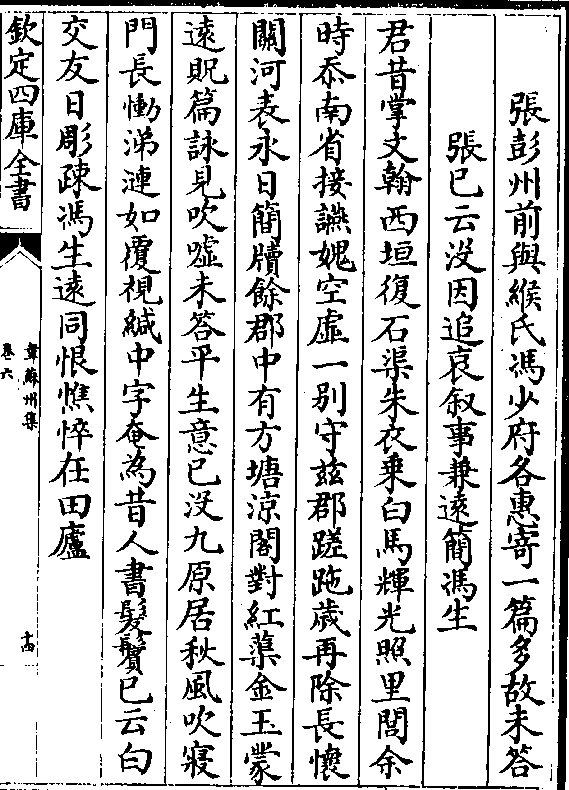 張彭州前與緱氏馮少府各惠寄一篇多故未答
張已云没因追哀叙事兼遠簡馮生
君昔掌文翰西垣復石渠朱衣乗白馬輝光照里閭余
時忝南省接讌媿空虛一别守兹郡蹉跎歲再除長懷
關河表永日簡牘餘郡中有方塘涼閣對紅蕖金玉蒙
遠貺篇詠見吹嘘未答平生意已没九原居秋風吹寝
門長慟涕漣如覆視緘中字奄為昔人書髮鬢已云白
交友日彫疎馮生遠同恨憔悴在田廬
欽定四庫全書
韋蘇州集
卷六
十四